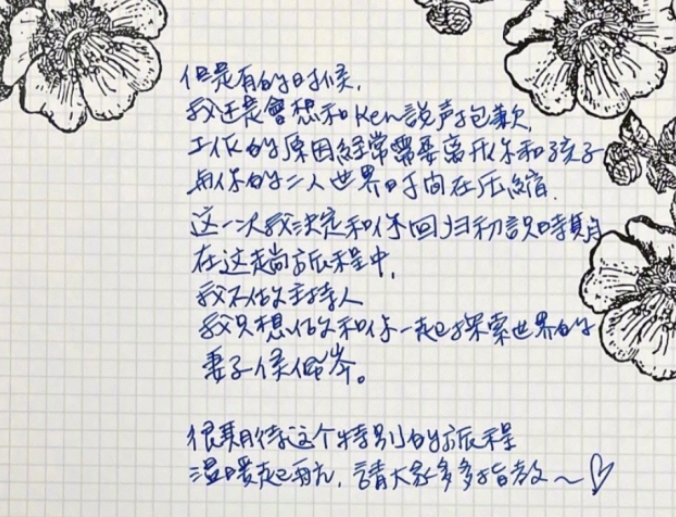 但是有的时候,
我还是會想和Ken説声抱歉,
工作的原因經常需要离开你和孩子
与你的二人世界时间在压縮.
这一次我決定和你回归初識時期
在这趟旅程中,
我不做主持人
我只想做和你一起探索世界的
妻子侯佩岑。
很期待这个特别的旅程
温暖起航,請大家多多指教~♡